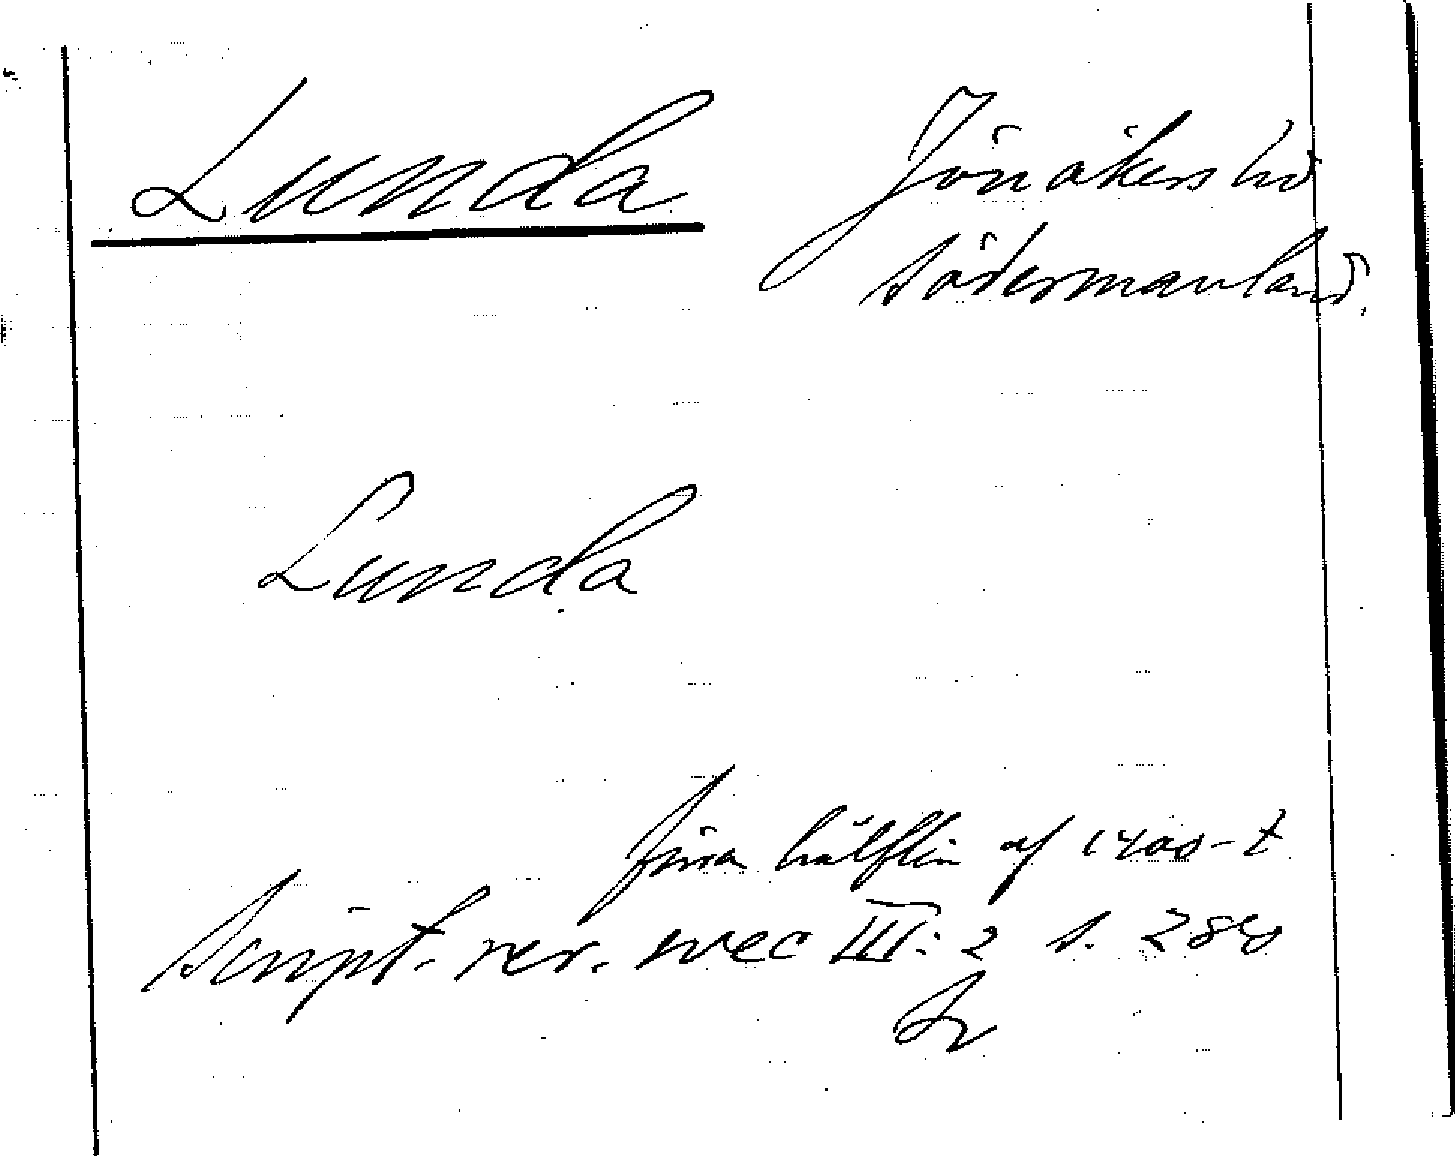 Lunda Jönåkers hd
Södermanland.
Lunda
förra hälften af 1400-t
Script. rer. svec III: 2 s.